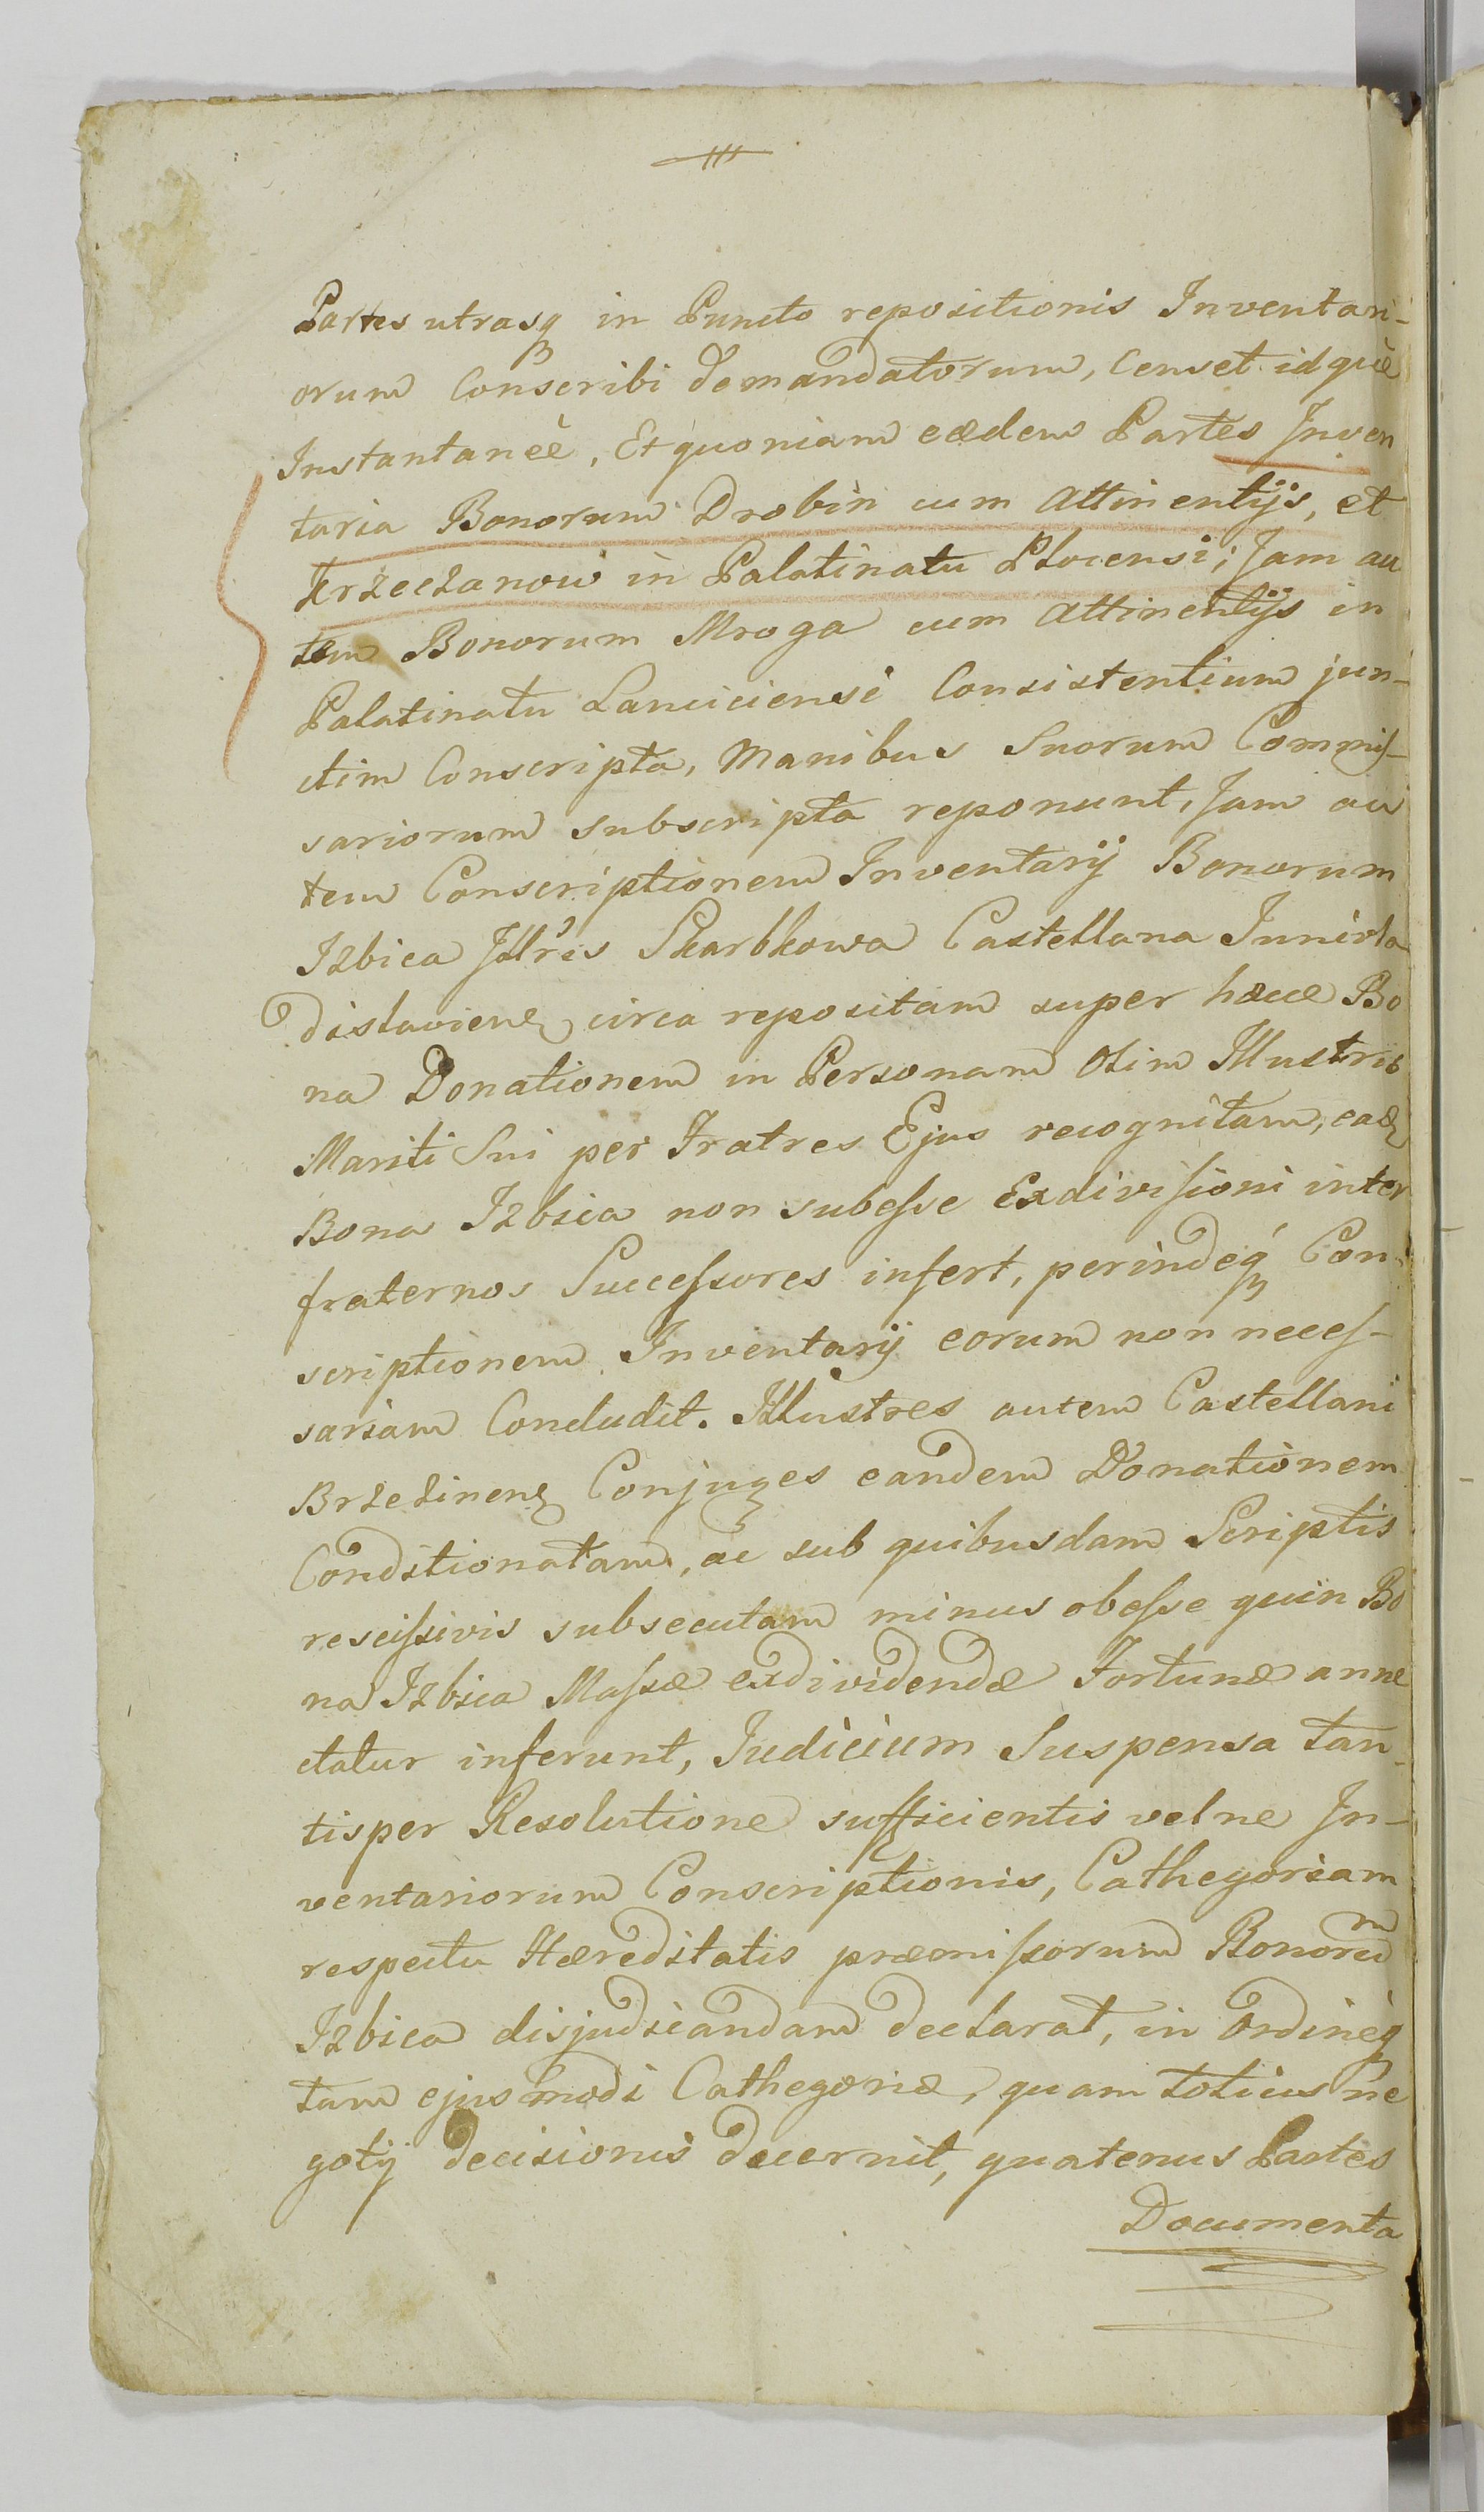 Partes utrasq in Puncto repositionis Inventari-
orum Conscribi demandatorum, Censet idquè
Instantaneè, Et quoniam eædem Partes Inven
taria Bonorum Drobin cum Attinentijs, et
Krzeczanow in Palatinatu Plocensi; Jam au
tem Bonorum Mroga cum Attinentijs in
Palatinatu Lanciciensi Consistentium jun-
ctim Conscripta, Manibus Suorum Commiſ-
sariorum subscripta reponunt, Jam au
tem Conscriptionem Inventarij Bonorum
Izbica Jllris Skarbkowa Castellana Junivla
dislavien circa repositam super hæce Bo
na Donationem in Personam Olim Illustris
Mariti Sui per Fratres Ejus recognitam, ead
Bona Izbica non subeſse Exdiviſioni inter
fraternos Succeſsores infert, perindeq Con-
scriptionem Inventarij eorum non neceſ-
sariam Concludit. Illustres autem Castellani
Brzezinen Conjuges eandem Donationem
Conditionatam, ac sub quibusdam Scriptis
resciſsivis subsecutam minus obeſse quin Bo
na Izbica Maſsæ exdividendæ Fortunæ anne
ctatur inferunt, Judicium Suspensa tan-
tisper Resolutione sufficientis velne In-
ventariorum Conscriptionis, Cathegoriam
respectu Hæreditatis præmiſsorum Bonorum
Izbica disjudicandam declarat, in Ordineq
tam ejusmodi Cathegoriæ, quam totius ne
gotij decisionis decernit, quatenus Partes
Documenta